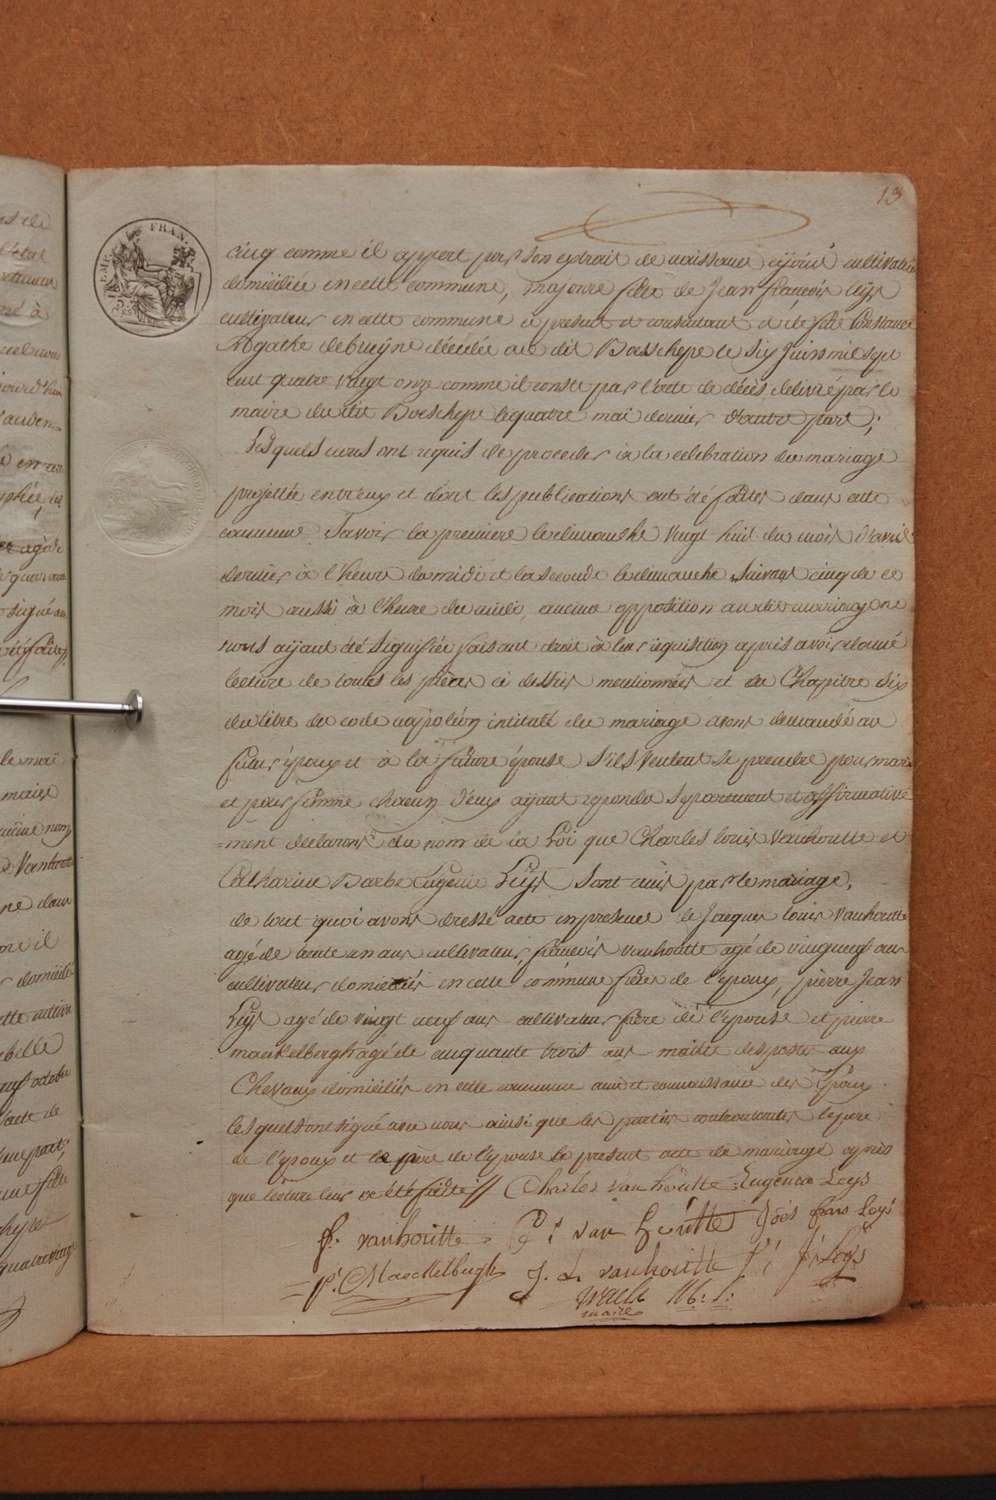 13
EMP FRAN
cinq comme il appert par son extrait de naissance ajouté cultivatrice
domiciliée en cette commune, majeure fille de Jean françois Leys
cultivateur en cette commune a present et consentant et de feue
Agathe debuyne décédée au dit Boeschepe le six Juin mil sept
cent quatre vingt onze comme il conste par l'acte de décès delivré par le
maire du dit Boeschepe le quatre mai dernier d'autre part;
Lesquels nous ont requis de proceder à la celebration du mariage
projettée entr'eux et dont les publications ont été faites dans cette
commune Savoir la premiere le dimanche vingt huit du mois d'avril
dernier à l'heure de midi et la seconde le dimanche suivant cinq de ce
mois aussi à l'heure de midi, aucune opposition audit mariage ne
nous ayant été signifiée faisant droit à leur requisition après avoir donné
lecture de toutes les pieces ci dessus mentionnées et du Chapitre six
du titre du code napoléon intitulé du mariage avons demandé au
futur époux et à la future épouse s'ils veulent se prendre pour mari
et pour femme chacun d'eux ayant repondu separement et affirmative
=ment declarons au nom de la Loi que Charles louis Vanhoutte et
Catharine Barbe Eugenie Leys sont unis par le mariage,
de tout quoi avons dressé acte en presence de Jacques louis vanhoutte
agé de trente un ans cultivateur, francois vanhoutte agé de vingt neuf ans
cultivateur domiciliés en cette commune freres de l'époux, pierre Jean
Leys agé de vingt neuf ans cultivateur frere de l'epouse et pierre
maeckelbergh agé de cinquante trois ans maitre des postes aux
Chevaux domiciliés en cette commune ami et connoissance des Epoux
lesquels ont signé avec nous ainsi que les parties contractantes le pere
de l'époux et le pere de l'epouse le present acte de mariage après
que lecture leur en a été faite // Charles van houtte Eugenia Leys
f. vanhoutte van houtte Joës frans Leys
p. Maeckelbergh J. L. vanhoutte P. J. Leys
maire